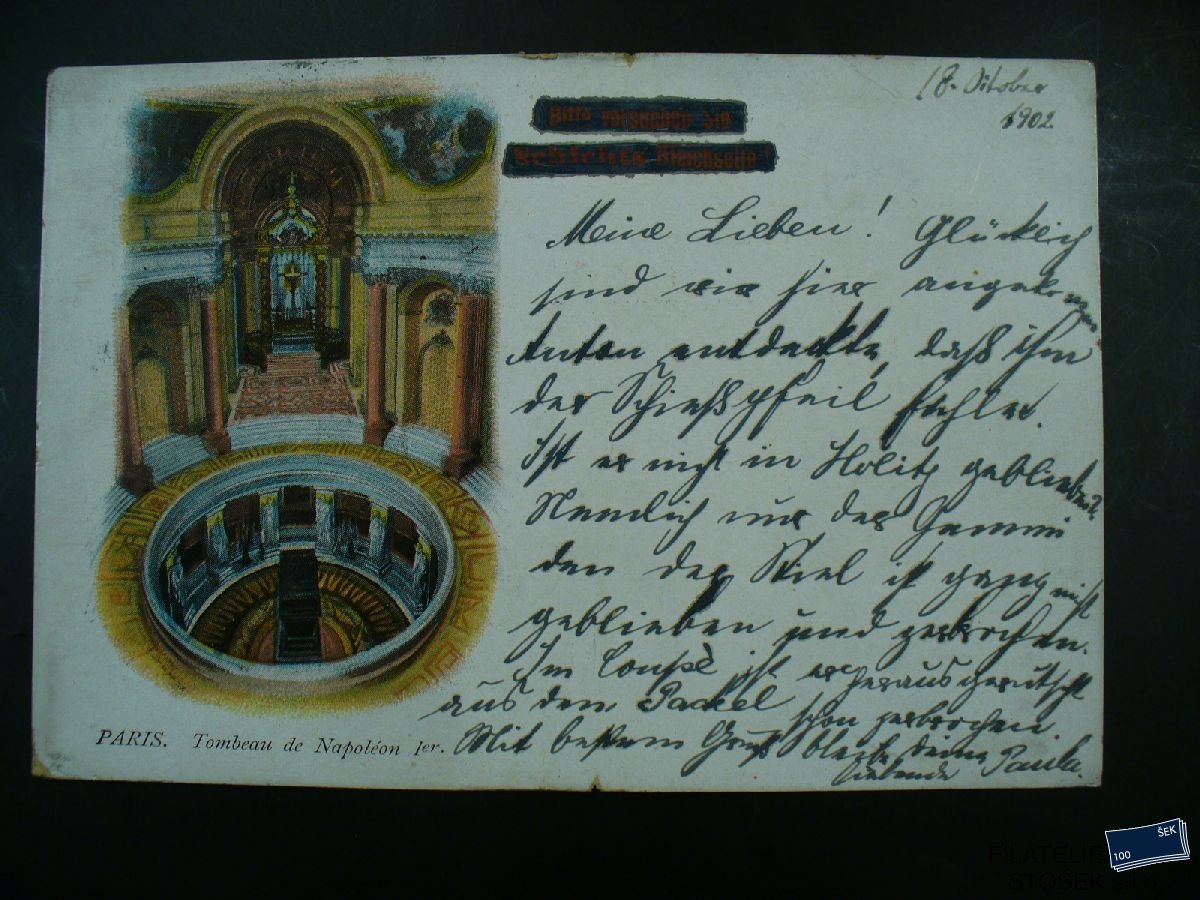 18. Oktober
1902
Bitte versuchen Sie
Schicht's Bleichseife!
Meine Lieben! Glücklich
sind wir hier angekommen
Anton entdeckte, daß ihm
der Schießpfeil fehle.
Ist er nicht in Holitz geblieben?
Nemlich nur der Gummi
den der Stiel ist ganz nicht
geblieben und zerbrochen.
Im Coupè ist er herausgerutscht
aus dem Packel schon zerbrochen.
Mit bestem Gruß bleibe deine
liebende Paula.
PARIS. Tombeau de Napoléon Ier.
ŠEK
100
FILATELIE
STOŠEK s.r.o.